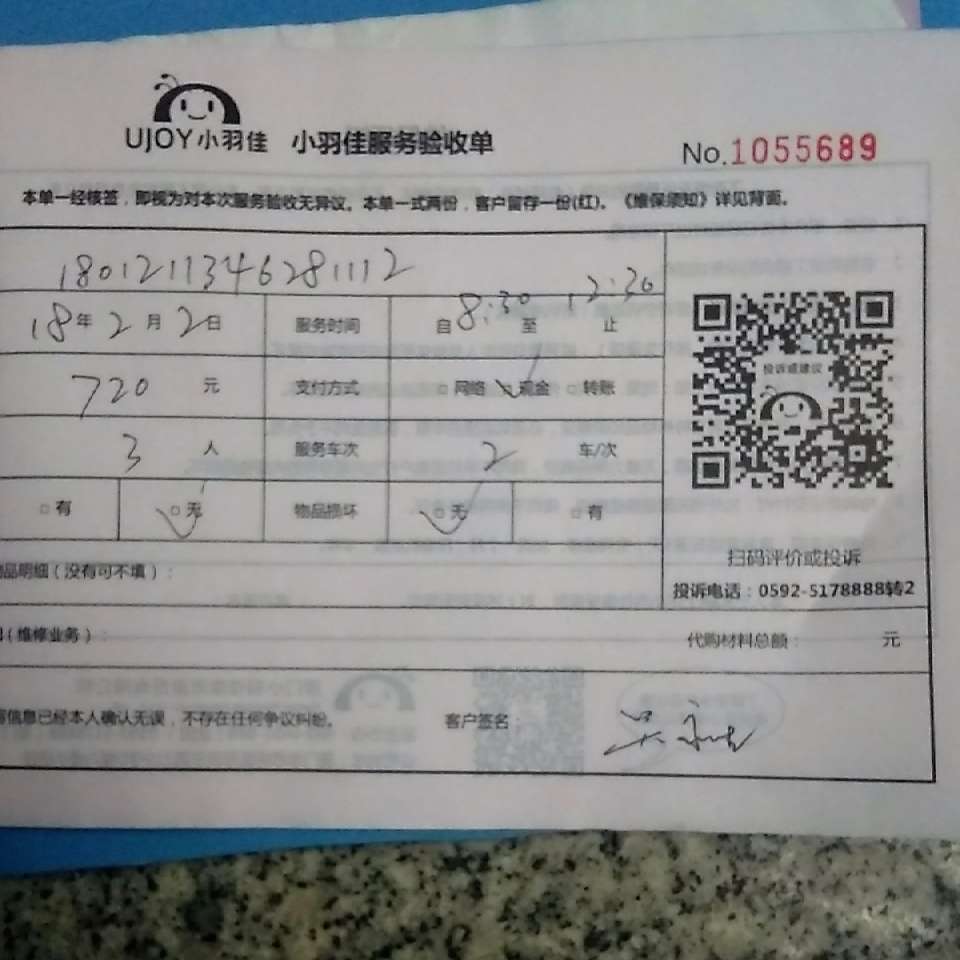 UJOY小羽佳 小羽佳服务验收单
No.1055689
本单一经核签，即视为对本次服务验收无异议。本单一式两份，客户留存一份(红)。《维保须知》详见背面。
180121134628 1112
18年2月2日 服务时间 自8:30至12:30止
投诉或建议
720元 支付方式 □网络 □现金 □转账
3人 服务车次 2车/次
□有 □无 物品损坏 □无 □有
扫码评价或投诉
品明细（没有可不填）：
投诉电话：0592-5178888转2
（维修业务）： 代购材料总额： 元
信息已经本人确认无误，不存在任何争议纠纷。 客户签名：